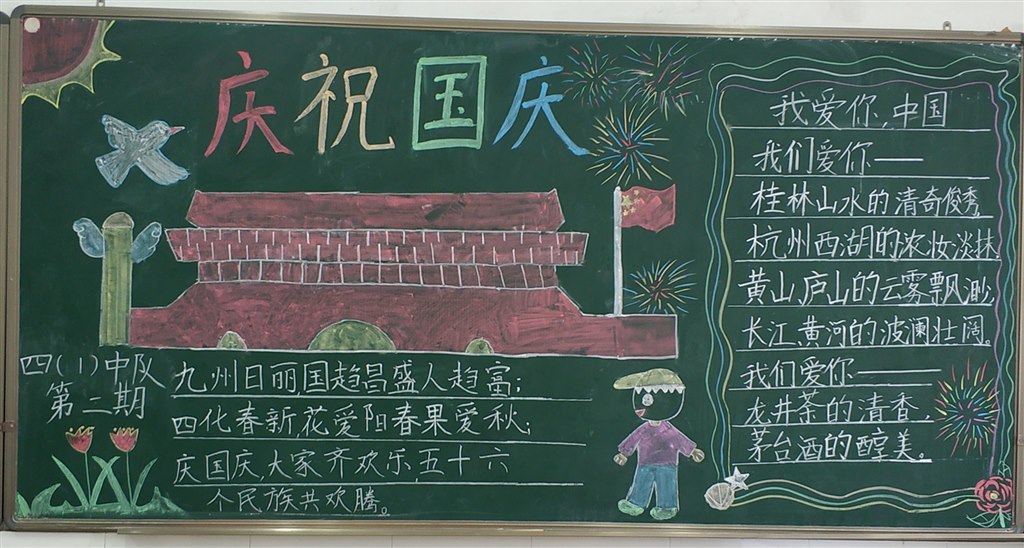 庆祝国庆
四(1)中队
第二期
九州日丽,国趋昌盛人趋富;
四化春新,花爱阳春果爱秋;
庆国庆,大家齐欢乐,五十六
个民族共欢腾。
我爱你,中国
我们爱你——
桂林山水的清奇俊秀,
杭州西湖的浓妆淡抹
黄山、庐山的云雾飘渺,
长江、黄河的波澜壮阔。
我们爱你——
龙井茶的清香,
茅台酒的醇美。